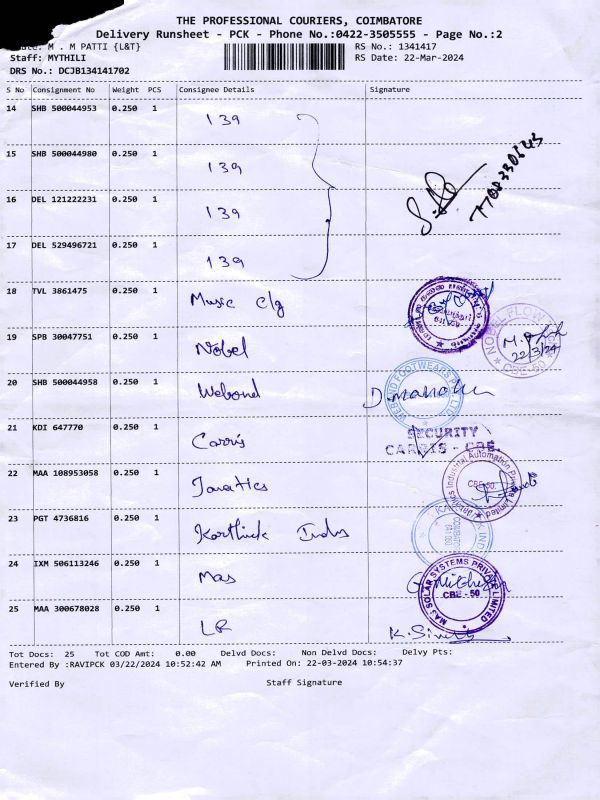 THE PROFESSIONAL COURIERS, COIMBATORE
Delivery Runsheet - PCK - Phone No.:0422-3505555 - Page No.:2
M . M PATTI {L&T} RS No.: 1341417
Staff: MYTHILI RS Date: 22-Mar-2024
DRS No.: DCJB134141702
S No Consignment No Weight PCS Consignee Details Signature
14 SHB 500044953 0.250 1 139
15 SHB 500044980 0.250 1 139
16 DEL 121222231 0.250 1 139
17 DEL 529496721 0.250 1 139
18 TVL 3861475 0.250 1 Music clg
19 SPB 30047751 0.250 1 Nobel
NOBEL FLOW
22/3/24
CBE-50
20 SHB 500044958 0.250 1 Webond D. Manohar
21 KDI 647770 0.250 1 Carris
SECURITY
CARRIS - CBE.
22 MAA 108953058 0.250 1 Janatics
Industrial Automation
CBE-50.
23 PGT 4736816 0.250 1 Karthick Indus
24 IXM 506113246 0.250 1 Mas
MAS SOLAR SYSTEMS PRIVATE LIMITED
CBE - 50
25 MAA 300678028 0.250 1 LR
Tot Docs: 25 Tot COD Amt: 0.00 Delvd Docs: Non Delvd Docs: Delvy Pts:
Entered By :RAVIPCK 03/22/2024 10:52:42 AM Printed On: 22-03-2024 10:54:37
Verified By Staff Signature